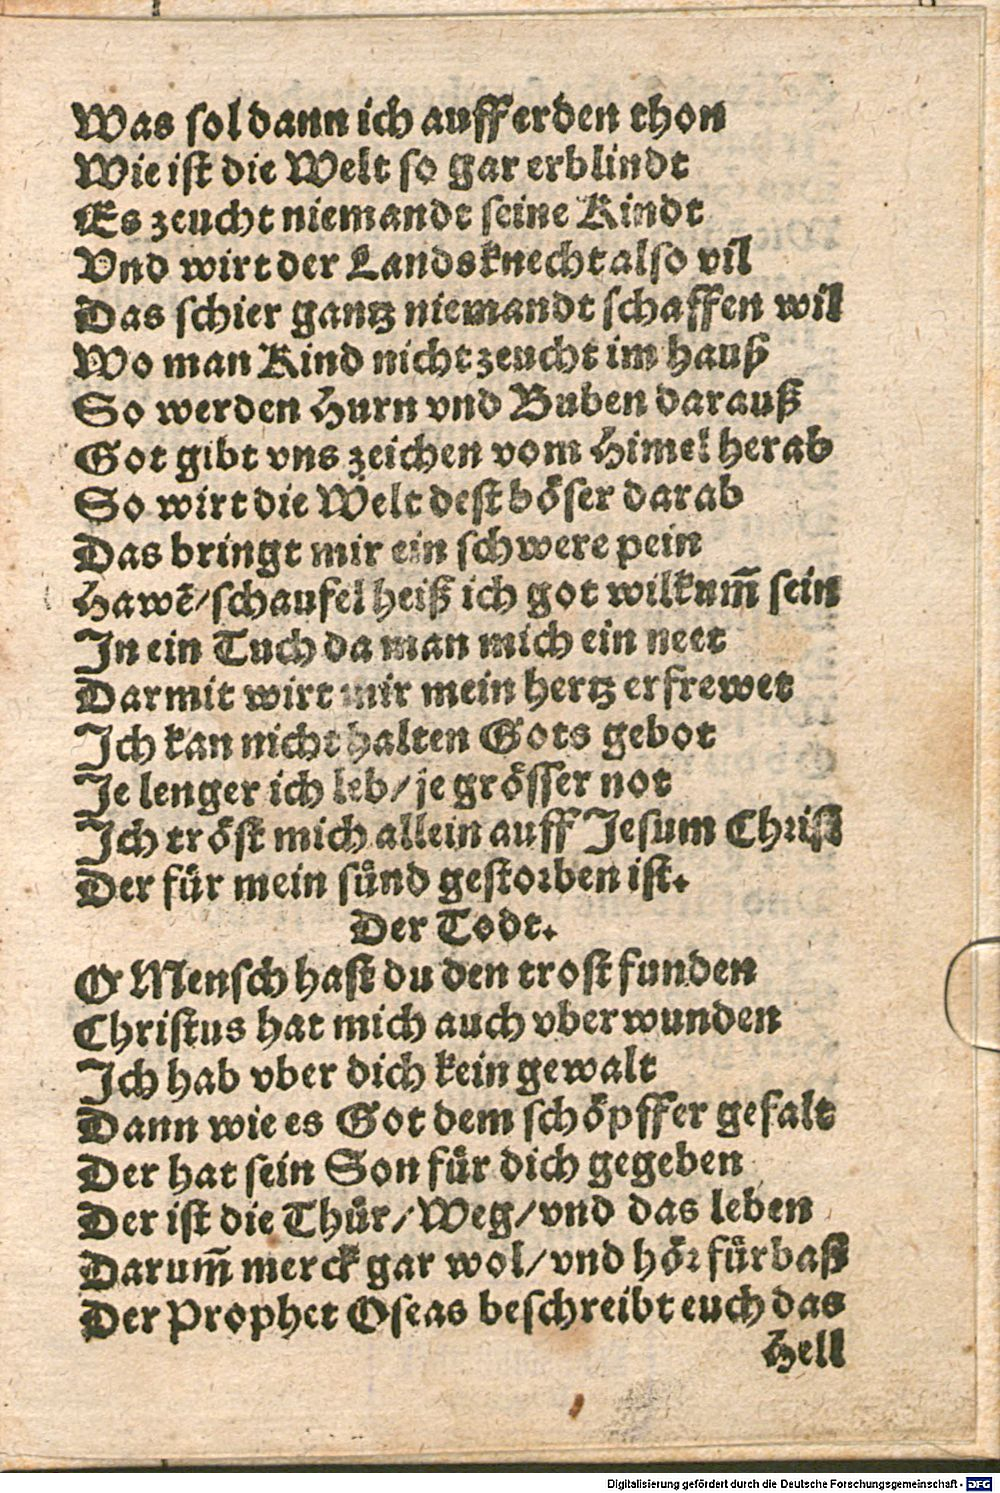 Was sol dann ich auff erden thon
Wie ist die Welt so gar erblindt
Es zeucht niemandt seine Kindt
Vnd wirt der Landsknecht also vil
Das schier gantz niemandt schaffen wil
Wo man Kind nicht zeucht im hauß
So werden Hurn vnd Buben darauß
Got gibt vns zeichen vom Himel herab
So wirt die Welt dest böser darab
Das bringt mir ein schwere pein
Hawē/schaufel heiß ich got wilkum̄ sein
In ein Tuch da man mich ein neet
Darmit wirt mir mein hertz erfrewet
Ich kan nicht halten Gots gebot
Je lenger ich leb/je grösser not
Ich tröst mich allein auff Jesum Christ
Der für mein sünd gestorben ist.
Der Todt.
O Mensch hast du den trost funden
Christus hat mich auch vberwunden
Ich hab vber dich kein gewalt
Dann wie es Got dem schöpffer gefalt
Der hat sein Son für dich gegeben
Der ist die Thür/Weg/vnd das leben
Darum̄ merck gar wol/vnd hör fürbaß
Der Prophet Oseas beschreibt euch das
Hell
Digitalisierung gefördert durch die Deutsche Forschungsgemeinschaft - DFG